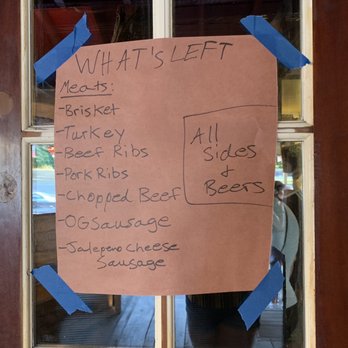 WHAT'S LEFT
Meats:
-Brisket
-Turkey
-Beef Ribs
-Pork Ribs
-Chopped Beef
-OG Sausage
-Jalepeno Cheese
Sausage
All
Sides
&
Beers